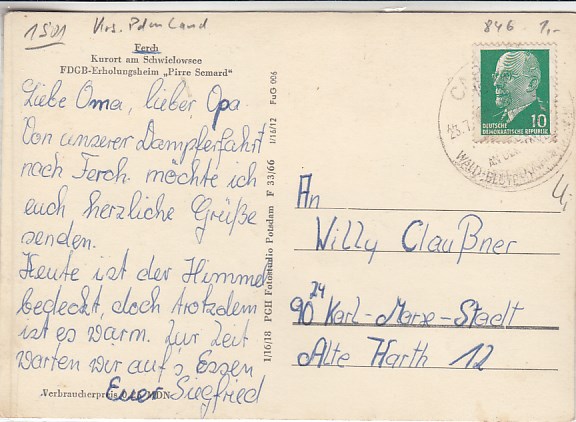 1501 Krs. Pdm Land
846 1,-
Ferch
Kurort am Schwielowsee
FDGB-Erholungsheim „Pirre Semard"
Liebe Oma, lieber Opa
Von unserer Dampferfahrt
nach Ferch möchte ich
euch herzliche Grüße
senden.
Heute ist der Himmel
bedeckt, doch trotzdem
ist es warm. Zur Zeit
warten wir auf's Essen
Euer Siegfried
Verbraucherpreis MDN
1/16/18 PGH Fotostudio Potsdam F 33/66 1/16/12 FuG 006
10
DEUTSCHE
DEMOKRATISCHE REPUBLIK
An
Willy Claußner
9024 Karl-Marx-Stadt
Alte Harth 12